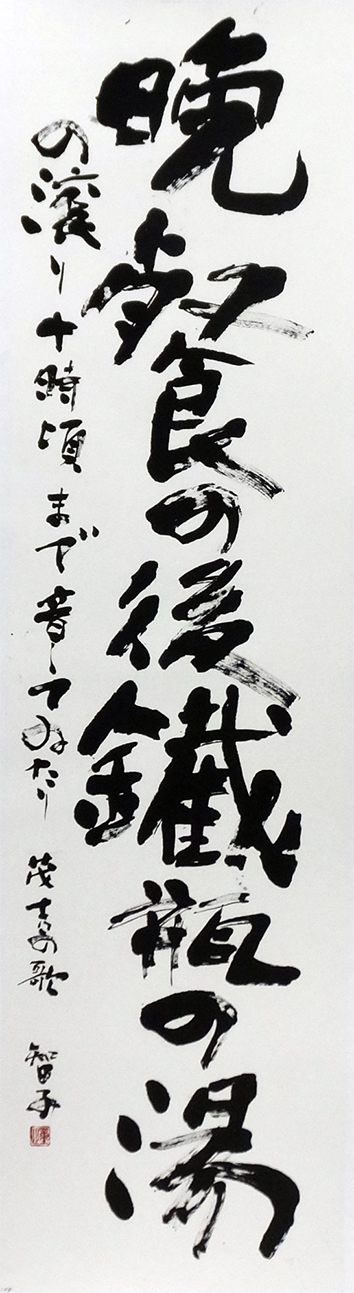 晩餐の後鐵瓶の湯
の滾り十時頃まで音してゐたり 茂吉の歌 智子